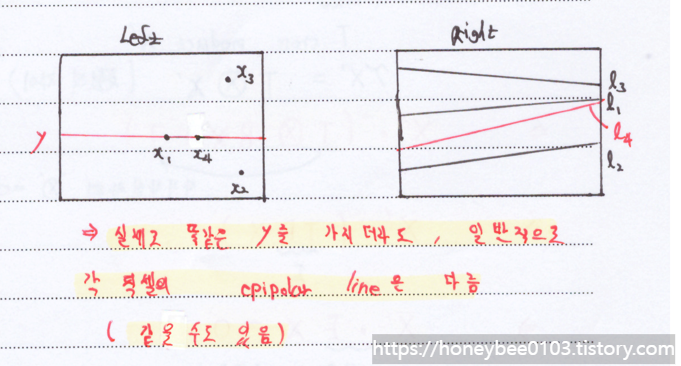 Left
Right
x₃
y
x₁
x₄
x₂
l₃
l₁
l₄
l₂
⇒ 실제로 똑같은 y를 가지더라도, 일반적으로
각 픽셀의 epipolar line은 다름
( 같을 수도 있음 )
https://honeybee0103.tistory.com